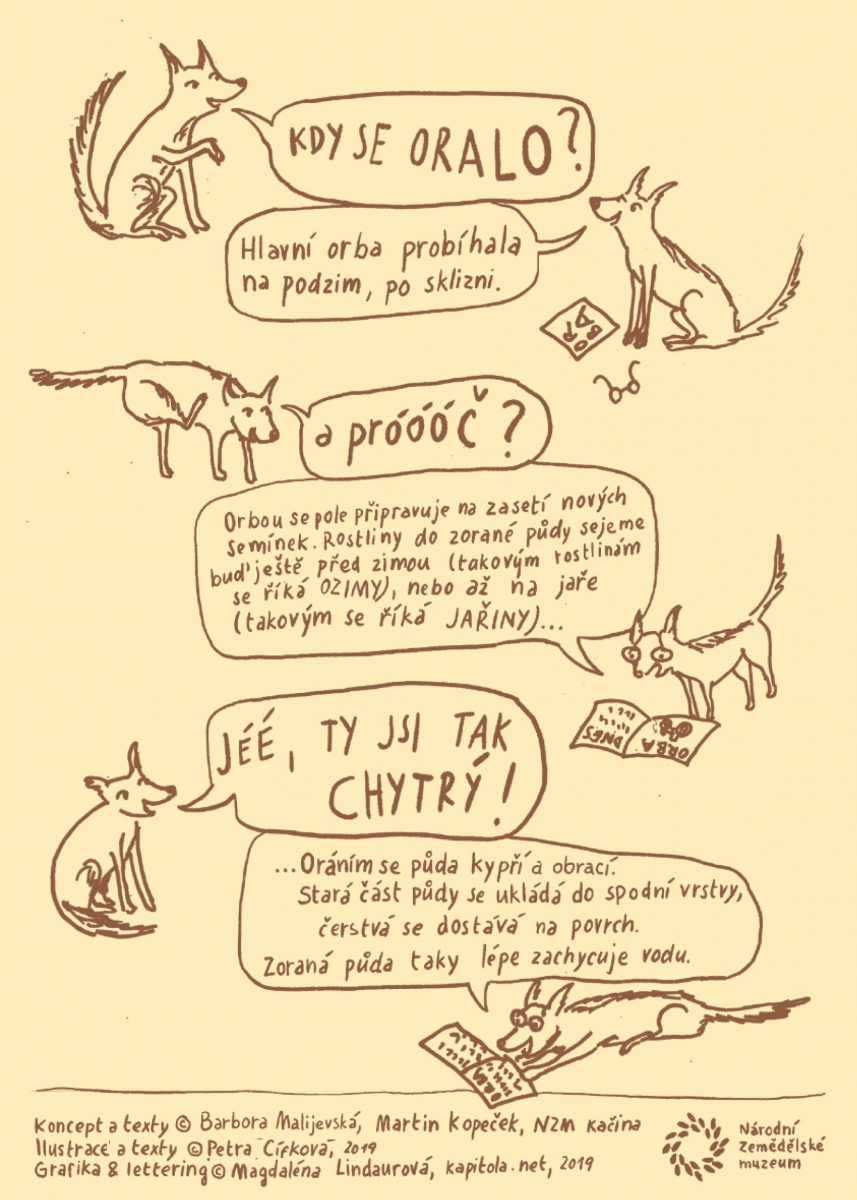 KDY SE ORALO?
Hlavní orba probíhala
na podzim, po sklizni.
ORBA
a próóóč?
Orbou se pole připravuje na zasetí nových
semínek. Rostliny do zorané půdy sejeme
buď ještě před zimou (takovým rostlinám
se říká OZIMY), nebo až na jaře
(takovým se říká JAŘINY)...
ORBA
DNES
JÉÉ, TY JSI TAK
CHYTRÝ!
...Oráním se půda kypří a obrací.
Stará část půdy se ukládá do spodní vrstvy,
čerstvá se dostává na povrch.
Zoraná půda taky lépe zachycuje vodu.
Koncept a texty © Barbora Malijevská, Martin Kopeček, NZM Kačina
Ilustrace a texty © Petra Círková, 2019
Grafika & lettering © Magdaléna Lindaurová, kapitola.net, 2019
Národní
zemědělské
muzeum